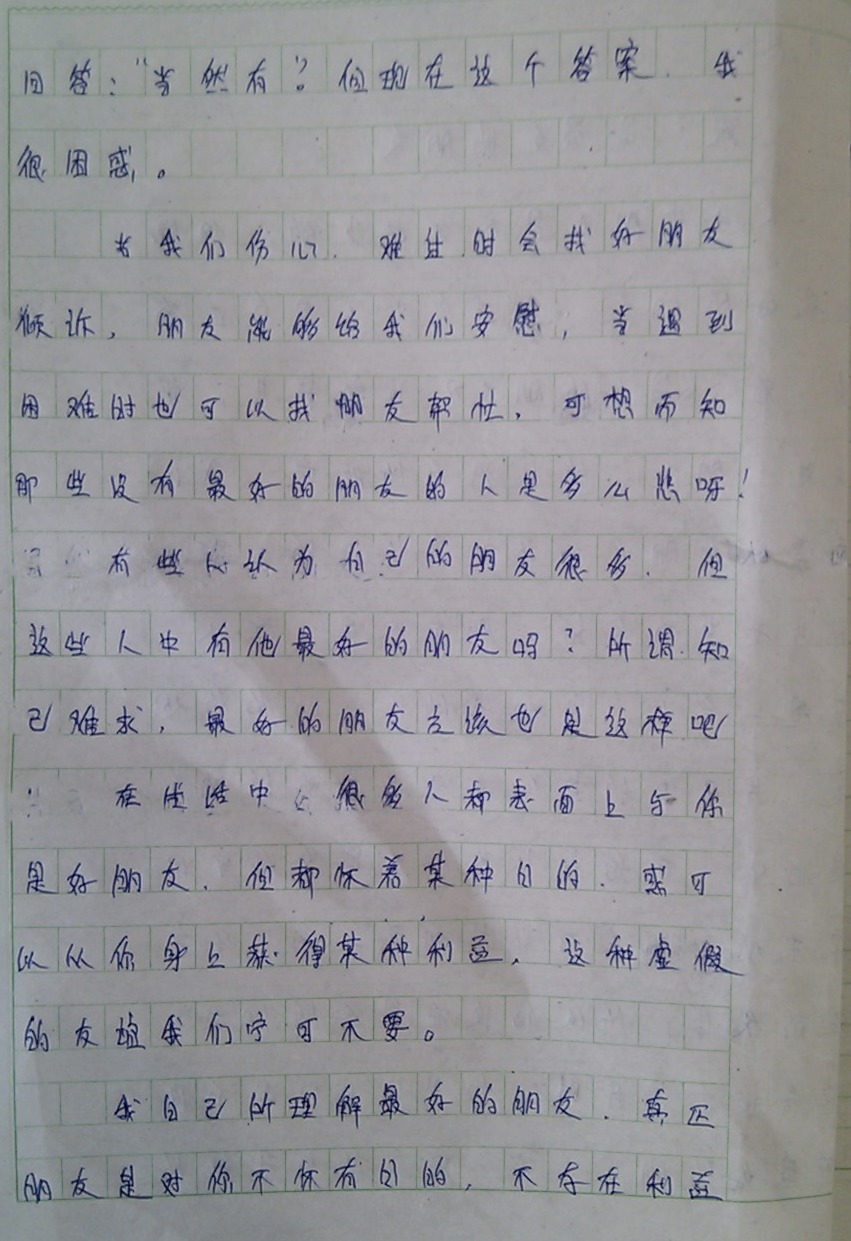 回答：“当然有”？但现在这个答案．我
很困惑。
当我们伤心．难过时会找好朋友
倾诉，朋友能够给我们安慰，当遇到
困难时也可以找朋友帮忙，可想而知
那些没有最好的朋友的人是多么悲呀！
有些人认为自己的朋友很多．但
这些人中有他最好的朋友吗？所谓知
己难求，最好的朋友应该也是这样吧
在生活中很多人都表面上与你
是好朋友．但都怀着某种目的．惑可
以从你身上获得某种利益，这种虚假
的友谊我们宁可不要。
我自己所理解最好的朋友．真正
朋友是对你不怀有目的，不存在利益